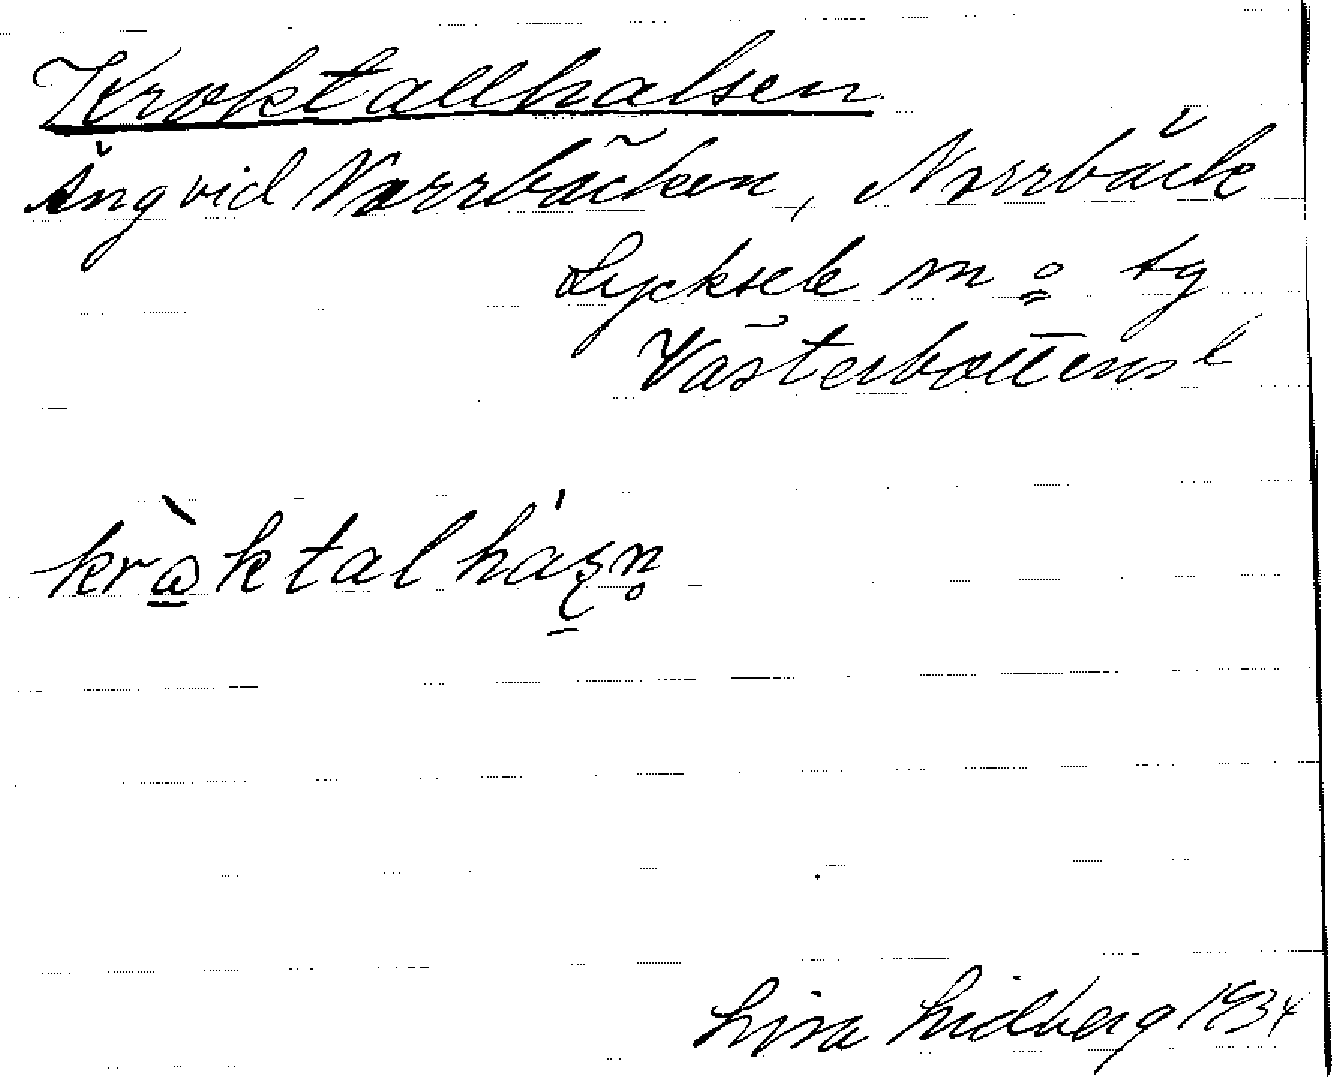 Kroktallhalsen
Äng vid Norrbäcken, Norrbäck
Lycksele m o tg
Västerbottens l
Lisa Lidberg 1934